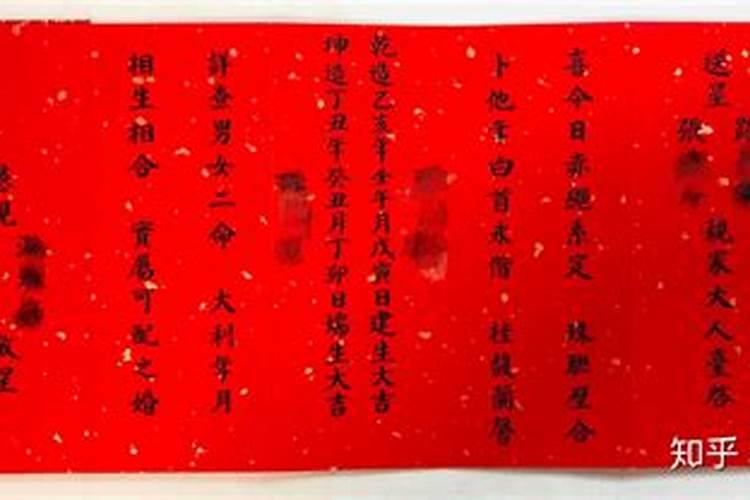 送呈
張
親家大人臺啓
喜今日赤繩系定 珠聯璧合
卜他年白首永偕 桂馥蘭馨
乾造乙亥年壬午月戊寅日建生大吉
坤造丁丑年癸丑月丁卯日瑞生大吉
詳查男女二命 大利年月
相生相合 實屬可配之婚
知乎